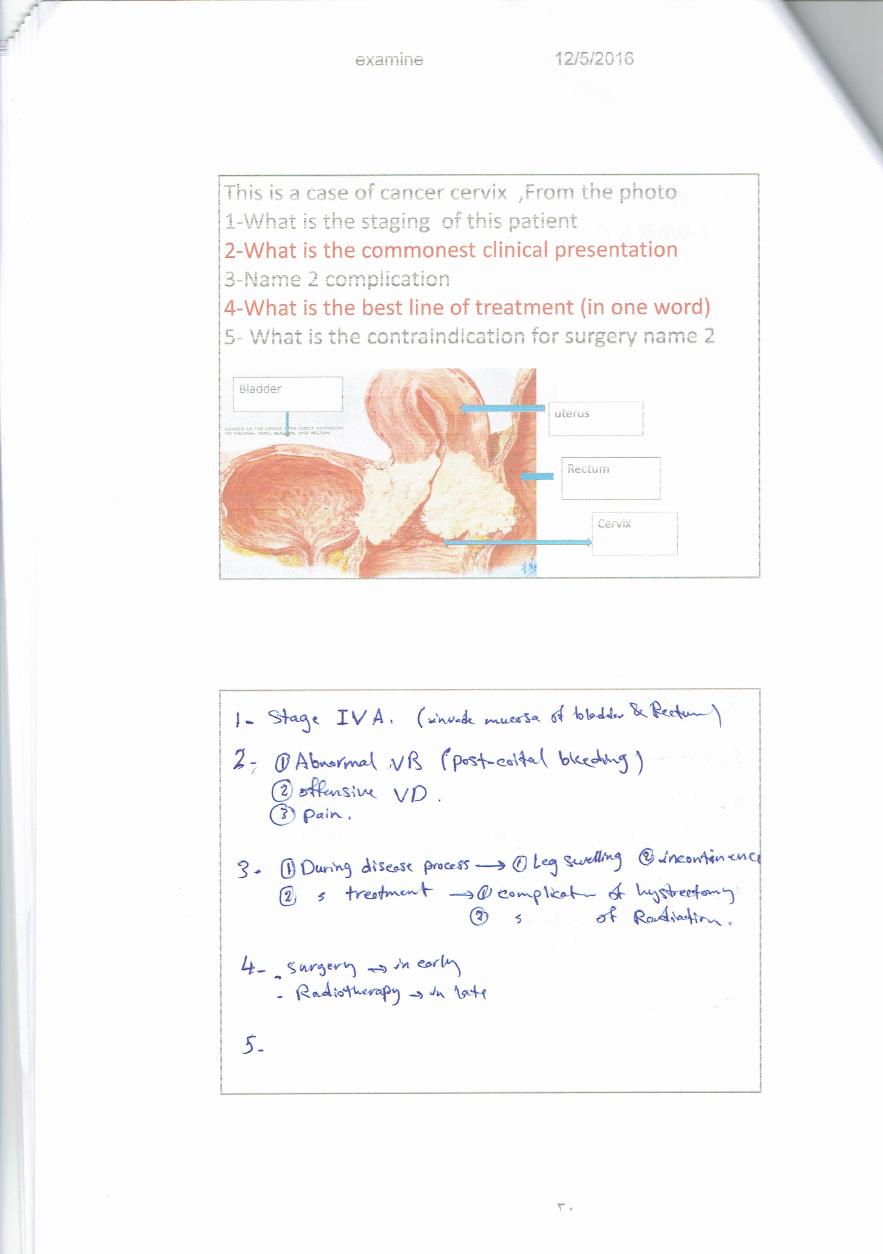 examine 12/5/2016
This is a case of cancer cervix ,From the photo
1-What is the staging of this patient
2-What is the commonest clinical presentation
3-Name 2 complication
4-What is the best line of treatment (in one word)
5- What is the contraindication for surgery name 2
Bladder
CANCER OF THE CERVIX WITH DIRECT EXTENSION
TO VAGINAL WALL, BLADDER, AND RECTUM
uterus
Rectum
Cervix
1- Stage IVA. (invade mucosa of bladder & Rectum)
2- ① Abnormal VB (post-coital bleeding)
② offensive VD.
③ Pain.
3- ① During disease process → ① Leg swelling ② incontinence
② s treatment → ① complicat of hystrectomy
② s of Radiation.
4- - surgery → in early
- Radiotherapy → in late
5-
٣٠